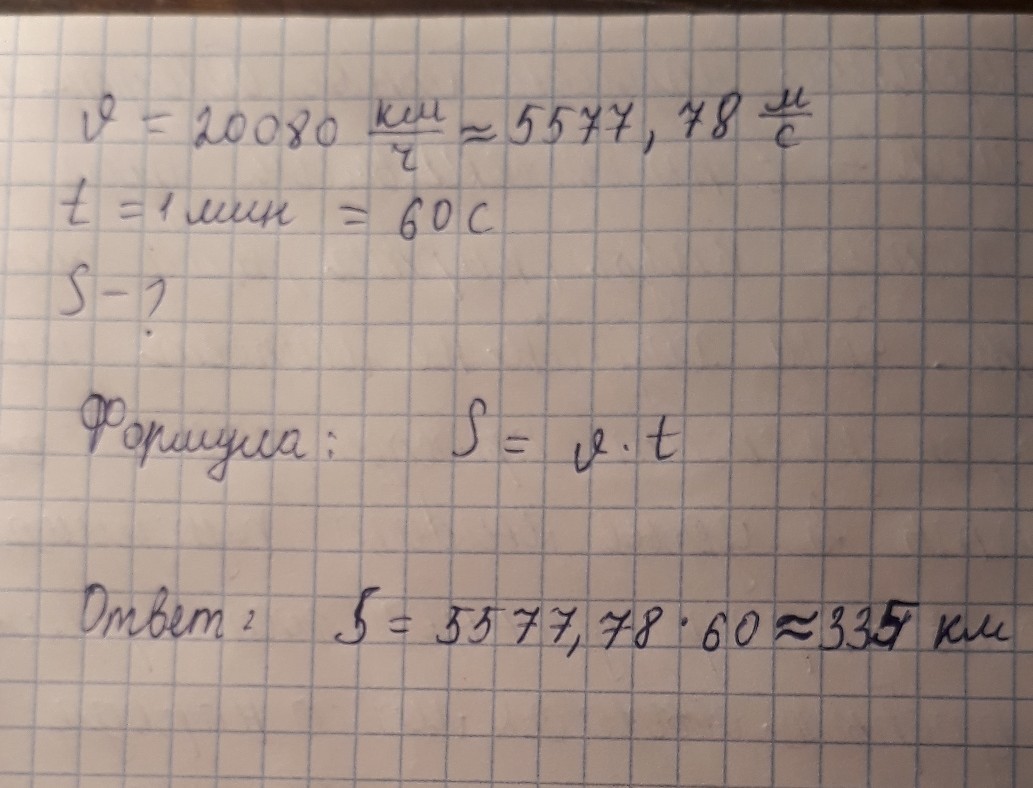 𝜗 = 20080 км/ч ≈ 5577,78 м/с
t = 1 мин = 60 с
S - ?
Формула: S = 𝜗 · t
Ответ: S = 5577,78 · 60 ≈ 335 км